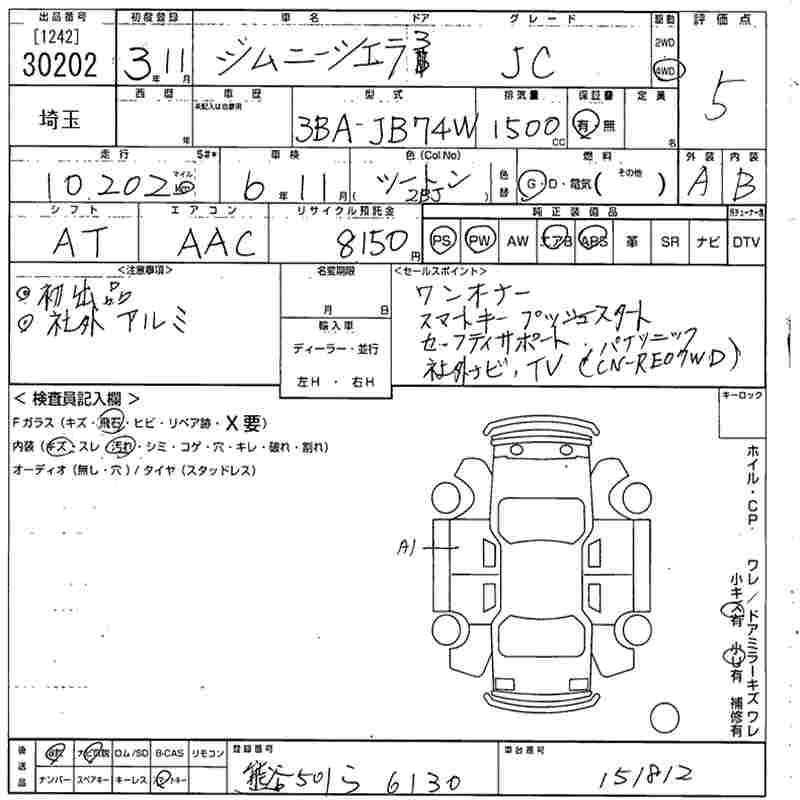 出品番号 初度登録 車名 ドア グレード 駆動 評価点
[1242]
30202 3年 11月 ジムニーシエラ 3 JC 2WD 4WD 5
埼玉 西暦 年 車歴 ※記入は自家用 型式 排気量 保証書 定員
3BA-JB74W 1500CC 有・無 名
走行 S#* 車検 色(ColNo) 燃料 外装 内装
10,202 マイル km 6年 11月 (ツートン 2BJ) 色替 G・D・電気( その他 ) A B
シフト エアコン リサイクル預託金 純正装備品
AT AAC 8150円 PS PW AW エアB ABS 革 SR ナビ DTV
<注意事項> 名変期限 <セールスポイント>
初出品 月 日 ワンオーナー
社外アルミ 輸入車 スマートキー プッシュスタート
ディーラー・並行 セーフティサポート・パナソニック
左H ・ 右H 社外ナビ、TV (CN-RE07WD)
< 検査員記入欄 > キーロック
Fガラス (キズ・飛石・ヒビ・リペア跡・X要)
内装 (キズ・スレ・汚れ・シミ・コゲ・穴・キレ・破れ・割れ)
オーディオ (無し・穴) / タイヤ (スタッドレス)
A1
ホイル・CP ワレ / ドアミラーキズ ワレ
小キズ有 小U有 補修有
後送品 ナビ取説 ロム/SD B-CAS リモコン 登録番号 車台番号
ナンバー スペアキー キーレス スマートキー 熊谷501ら 6130 151812